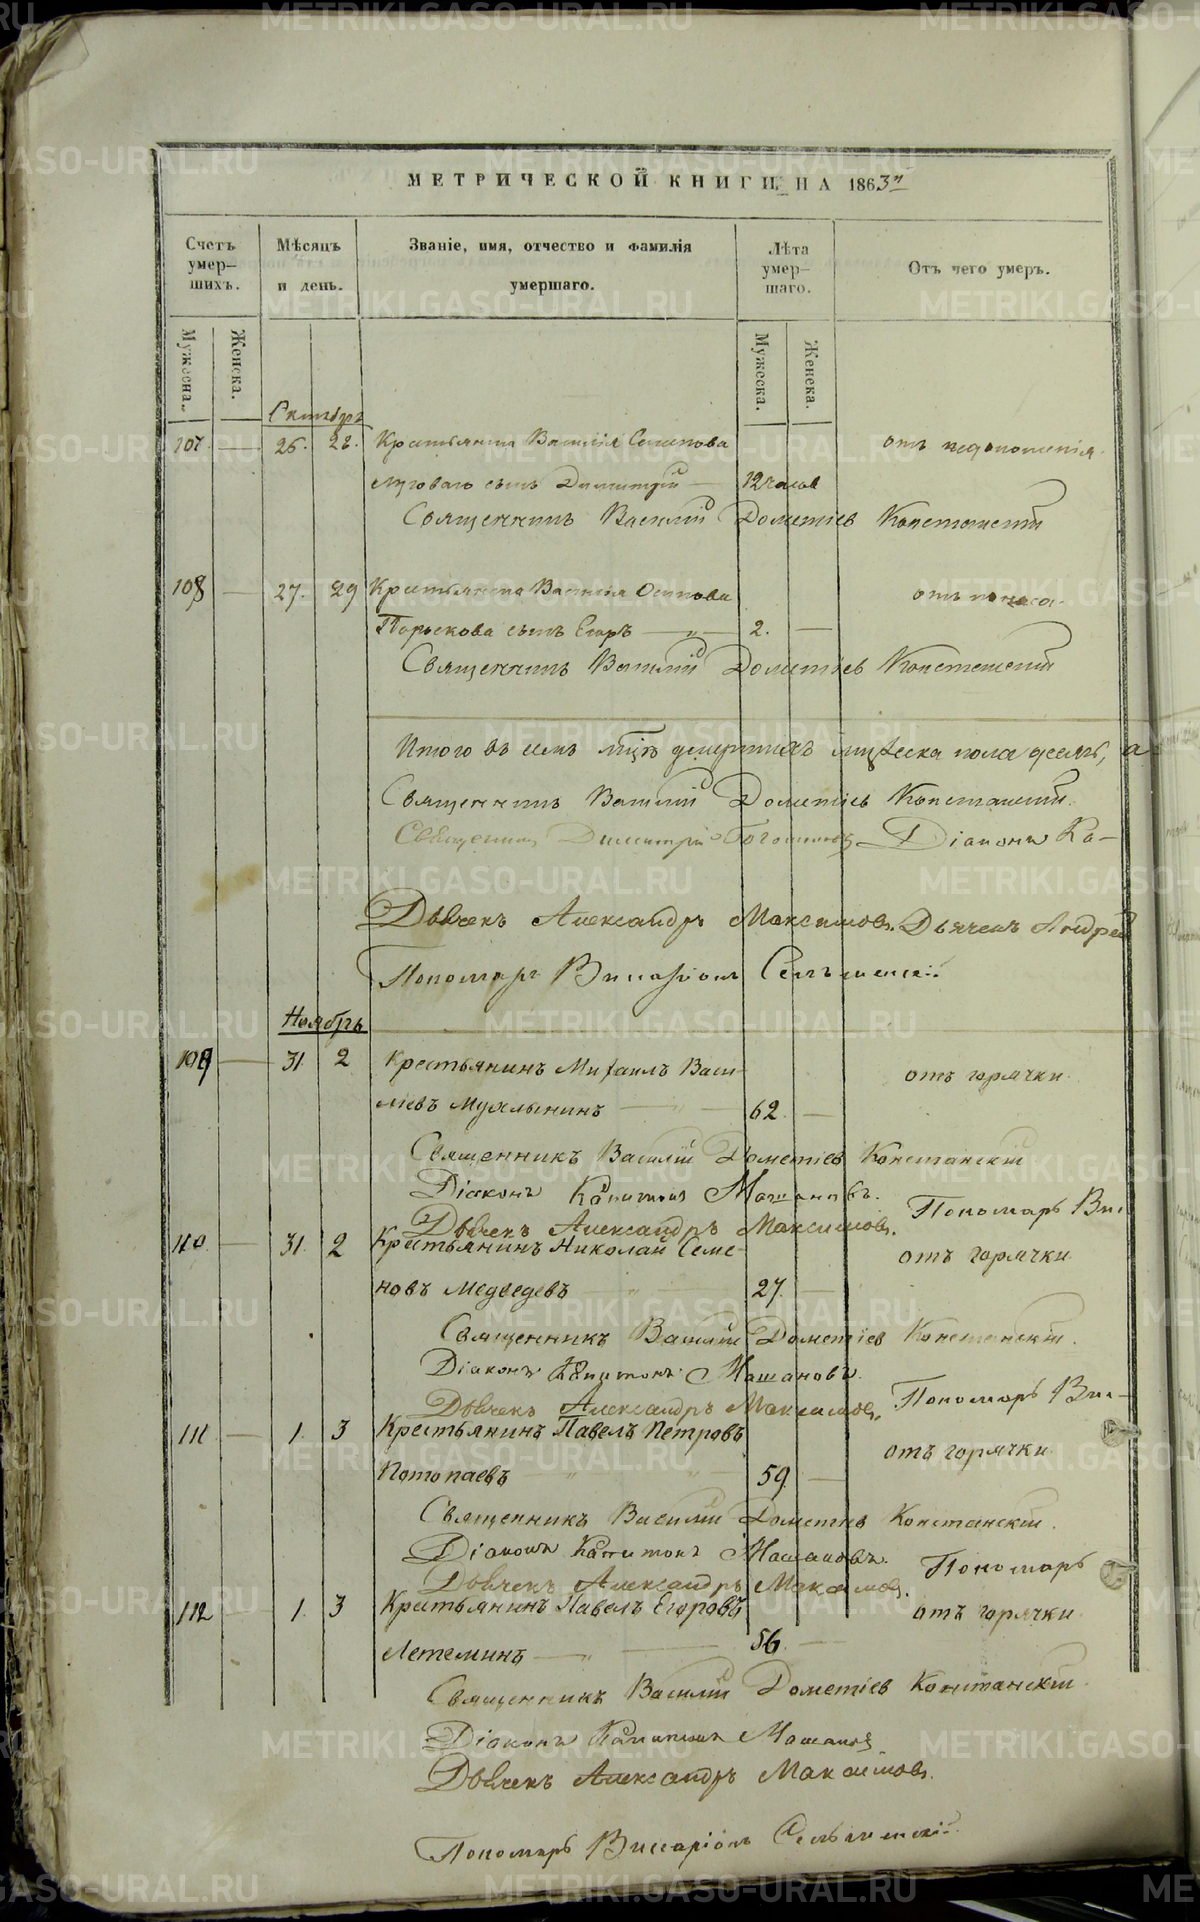 МЕТРИЧЕСКОЙ КНИГИ НА 1863й
Счетъ умер-шихъ.
Мѣсяцъ и день.
Званіе, имя, отчество и фамилія умершаго.
Лѣта умер-шаго.
Отъ чего умеръ.
Мужеска.
Женска.
Мужеска.
Женска.
Октябрь
107. 26. 28. Крестьянина Василія
сынъ Димитрій 12 часов
Священникъ Василій Дометіев Констанскій
108 27. 29 Крестьянина Василія Осипова отъ поноса.
сынъ Егоръ 2.
Священникъ Василій Дометіев Констанскій
Итого въ семъ мцѣ умершихъ мужеска пола а
Священникъ Василій Дометіев Констанскій.
Священникъ Димитрій Діаконъ Ка-
Дьячекъ Александръ Максимовъ. Дьячекъ Андрей
Пономарь Виссаріонъ
Ноябрь
109 31 2 Крестьянинъ Михаилъ Васи- отъ горячки
ліевъ 62.
Священникъ Василій Дометіев Констанскій
Діаконъ Капитонъ Машановъ.
Дьячекъ Александръ Максимовъ. Пономарь Вис-
110 31 2 Крестьянинъ Николай Семе- отъ горячки
новъ Медведевъ 27.
Священникъ Василій Дометіев Констанскій.
Діаконъ Капитонъ Машановъ.
Дьячекъ Александръ Максимовъ. Пономарь Вис-
111 1. 3 Крестьянинъ Павелъ Петровъ отъ горячки
Потопаевъ 59.
Священникъ Василій Дометіев Констанскій.
Діаконъ Капитонъ Машановъ.
Дьячекъ Александръ Максимовъ. Пономарь
112 1. 3 Крестьянинъ Павелъ Егоровъ отъ горячки
Летеминъ 56.
Священникъ Василій Дометіев Констанскій.
Діаконъ Капитонъ Машановъ
Дьячекъ Александръ Максимовъ.
Пономарь Виссаріонъ
METRIKI.GASO-URAL.RU